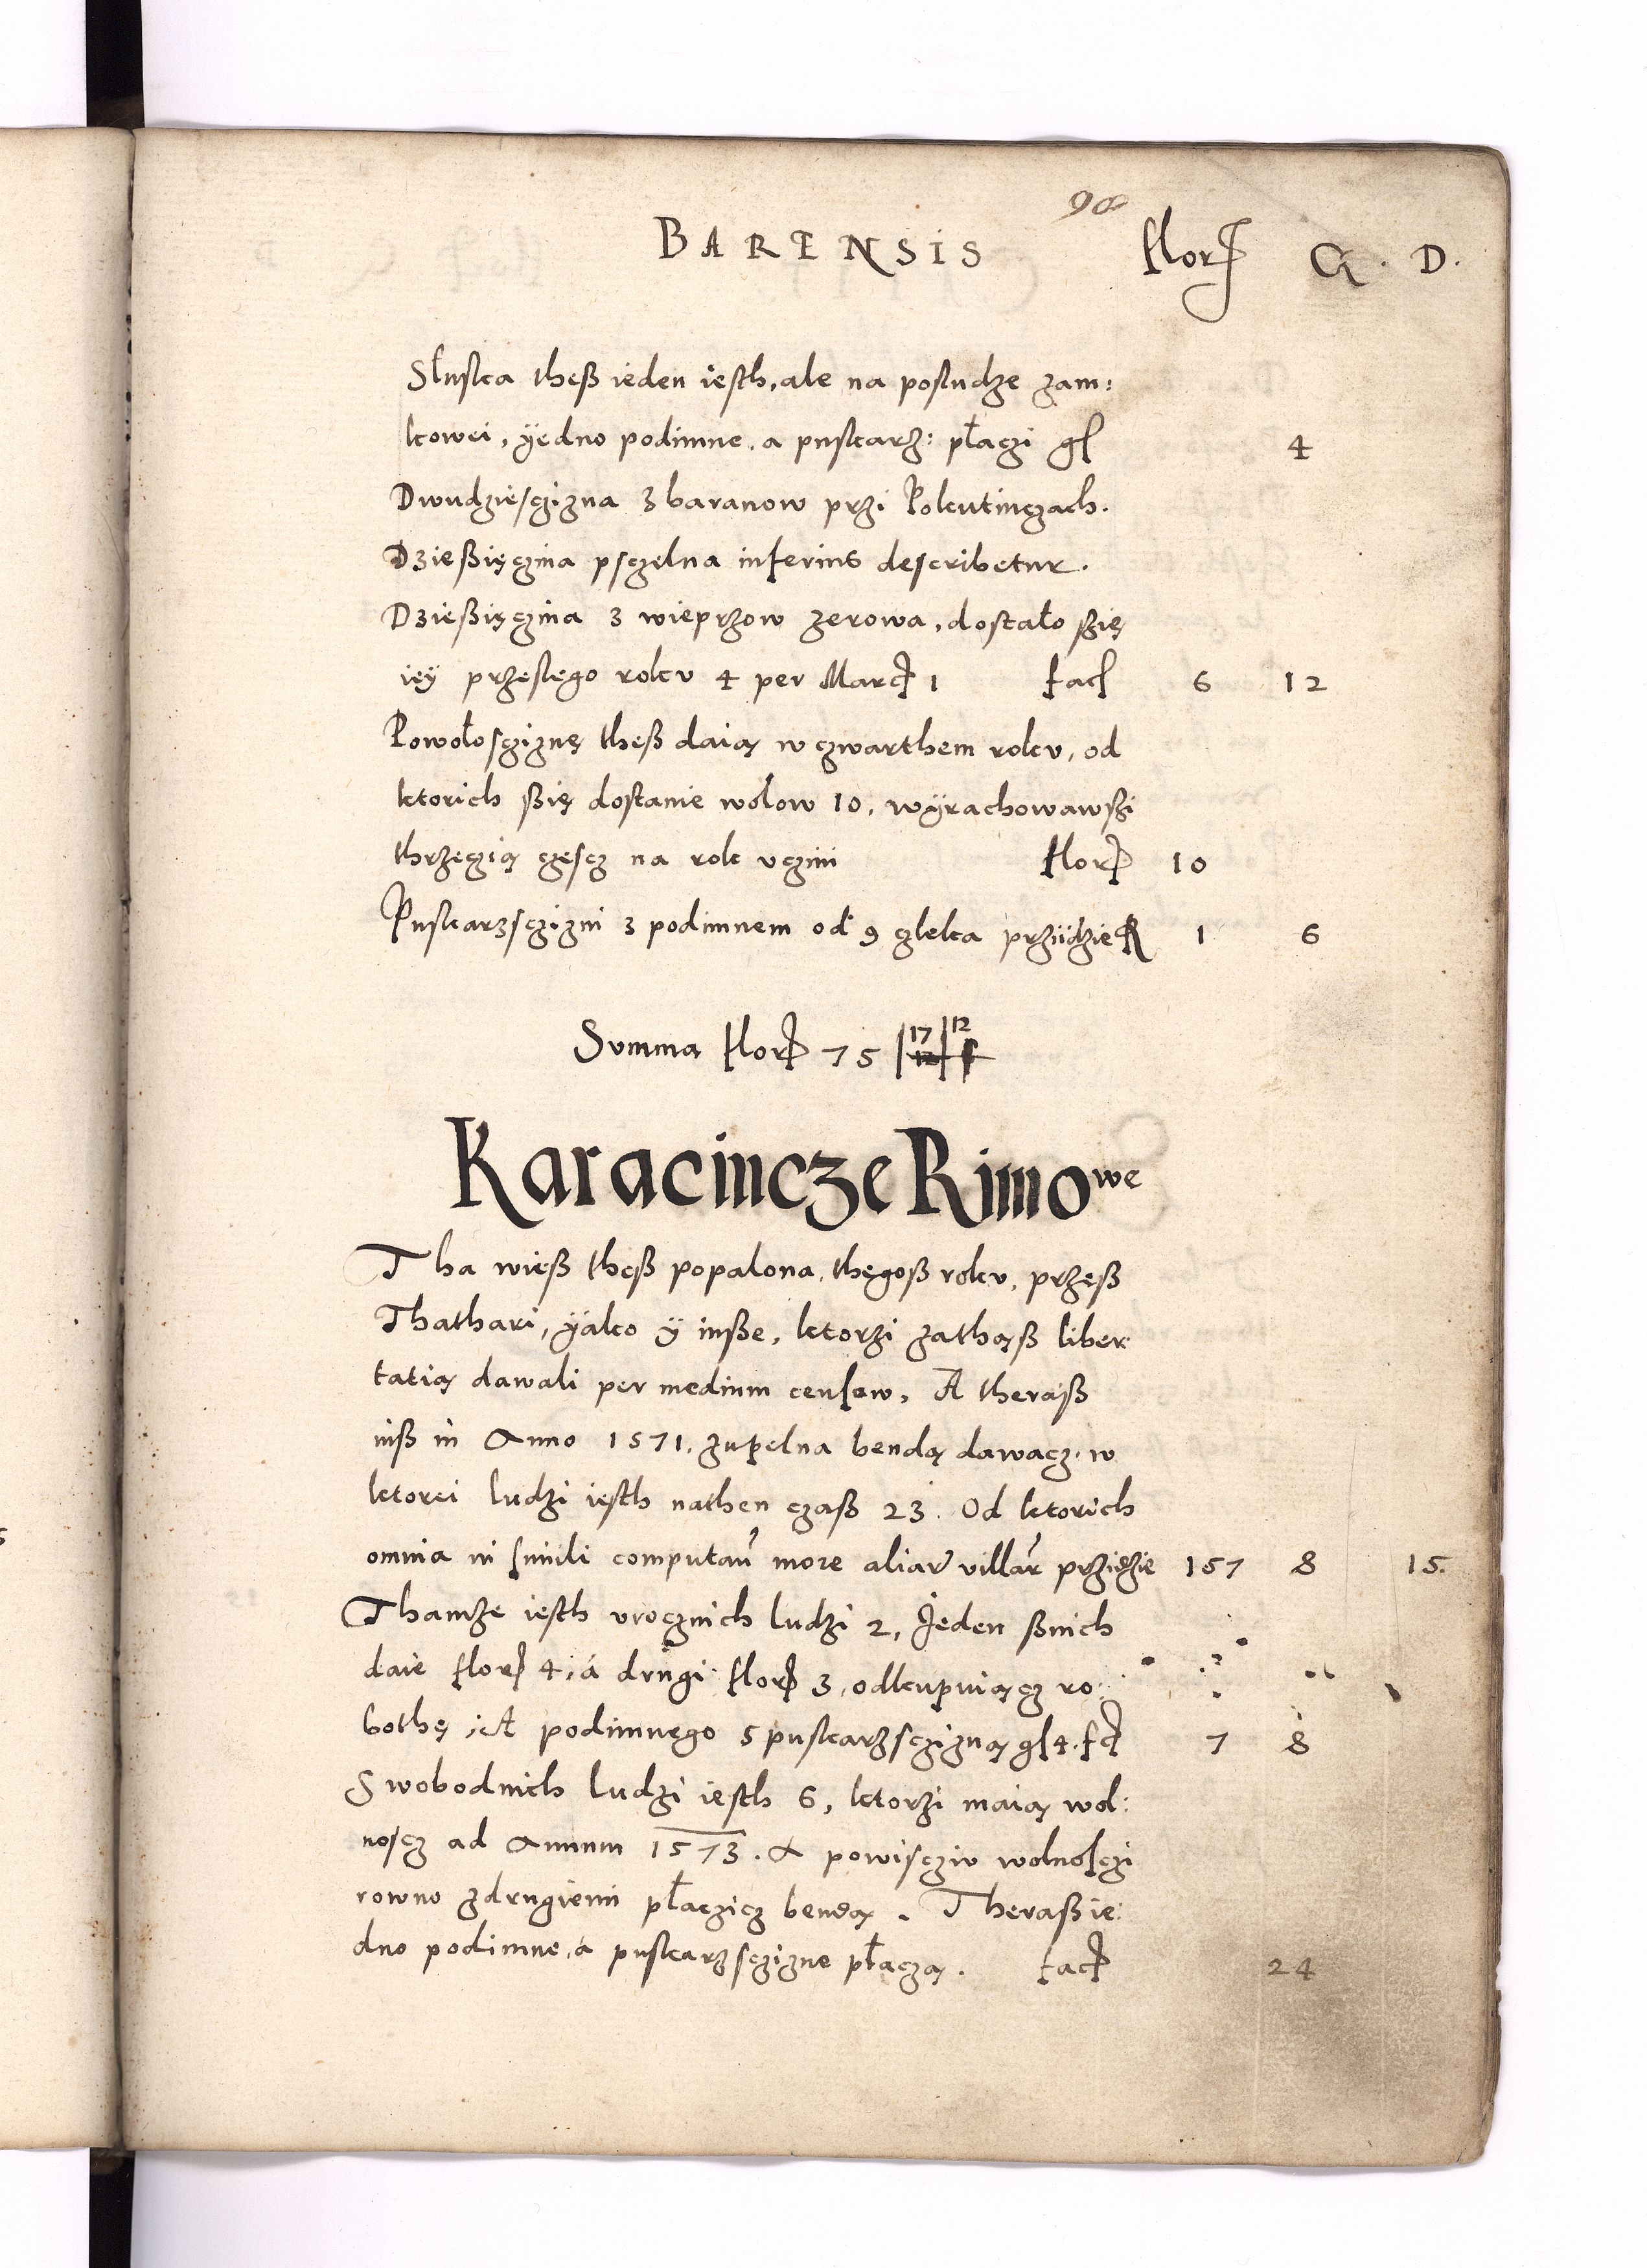 98
BARENSIS flor G. D.
Słuszka theß ieden iesth, ale na posludze zam:
kowei, ÿedno podimne, a puskarz: płaczi gs 4
Dwudziesczizna z baranow przi Polcutinczach.
Dzießięczina psczelna inferius describetur.
Dzießięczina z wieprzow zerowa, dostało szię
ięÿ przeslego rokv 4 per Marc 1 fac 6 12
Powołoscziznę theß daią w czwarthem rokv, od
ktorich ßię dostanie wołow 10, wÿrachowawszi
thrzeczią czescz na rok vczini flor 10
Puskarzsczizni z podimnem od 9 człeka prziidzie fl 1 6
Summa flor 75 | 17 | 12
Karacincze Rimowe
Tha wieß theß popalona, thegoß rokv, przeß
Thathari, ÿako ÿ insze, ktorzi zathąß liber
tatią dawali per medium censow, A theraß
iuß in Anno 1571. zupelna bendą dawacz. w
ktorei ludzi iesth nathen czaß 23. Od ktorich
omnia in simili computan more aliar villar prziidzie 157 8 15.
Thamze iesth vrocznich ludzi 2, Jeden ßnich
daie flor 4, á drugi flor 3, odkupuiącz ro:
bothę, A podimnego s puskarzsczizną gs 4. fc 7 8
Swobodnich ludzi iesth 6, ktorzi maią wol:
noscz ad Annum 1573. A powisczciu wolnosczi
rowno zdrugiemi płaczicz bendą. Theraß ie:
dno podimne, a puskarzsczizne płaczą. fac 24